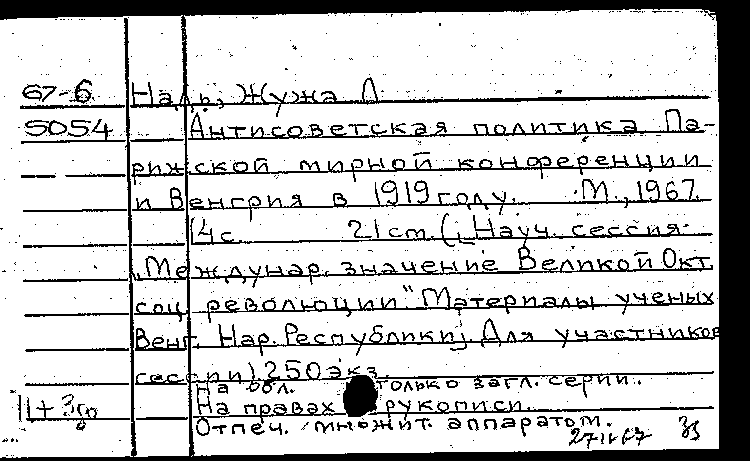 67-6 Надь, Жужа Л
5054 Антисоветская политика Па-
рижской мирной конференции
и Венгрия в 1919 году. М., 1967.
14 с. 21 cm. (Науч. сессия
"Междунар. значение Великой Окт.
соц. революции" Материалы ученых
Венг. Нар. Республики. Для участников
сессии) 250 экз.
На обл. только загл. серии.
На правах рукописи.
Отпеч. множит. аппаратом.